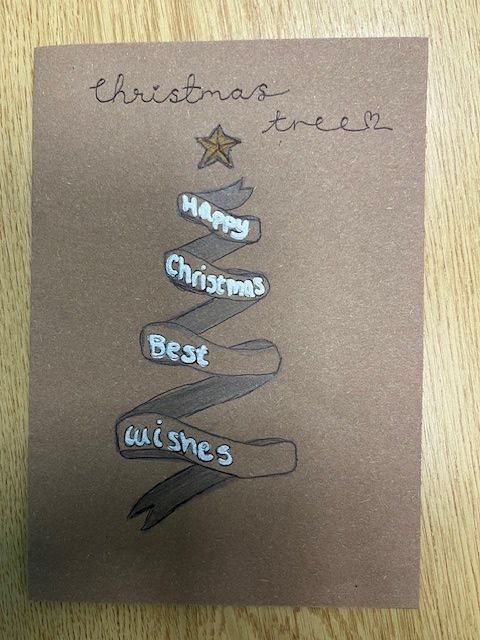 Christmas
tree
Happy
Christmas
Best
wishes